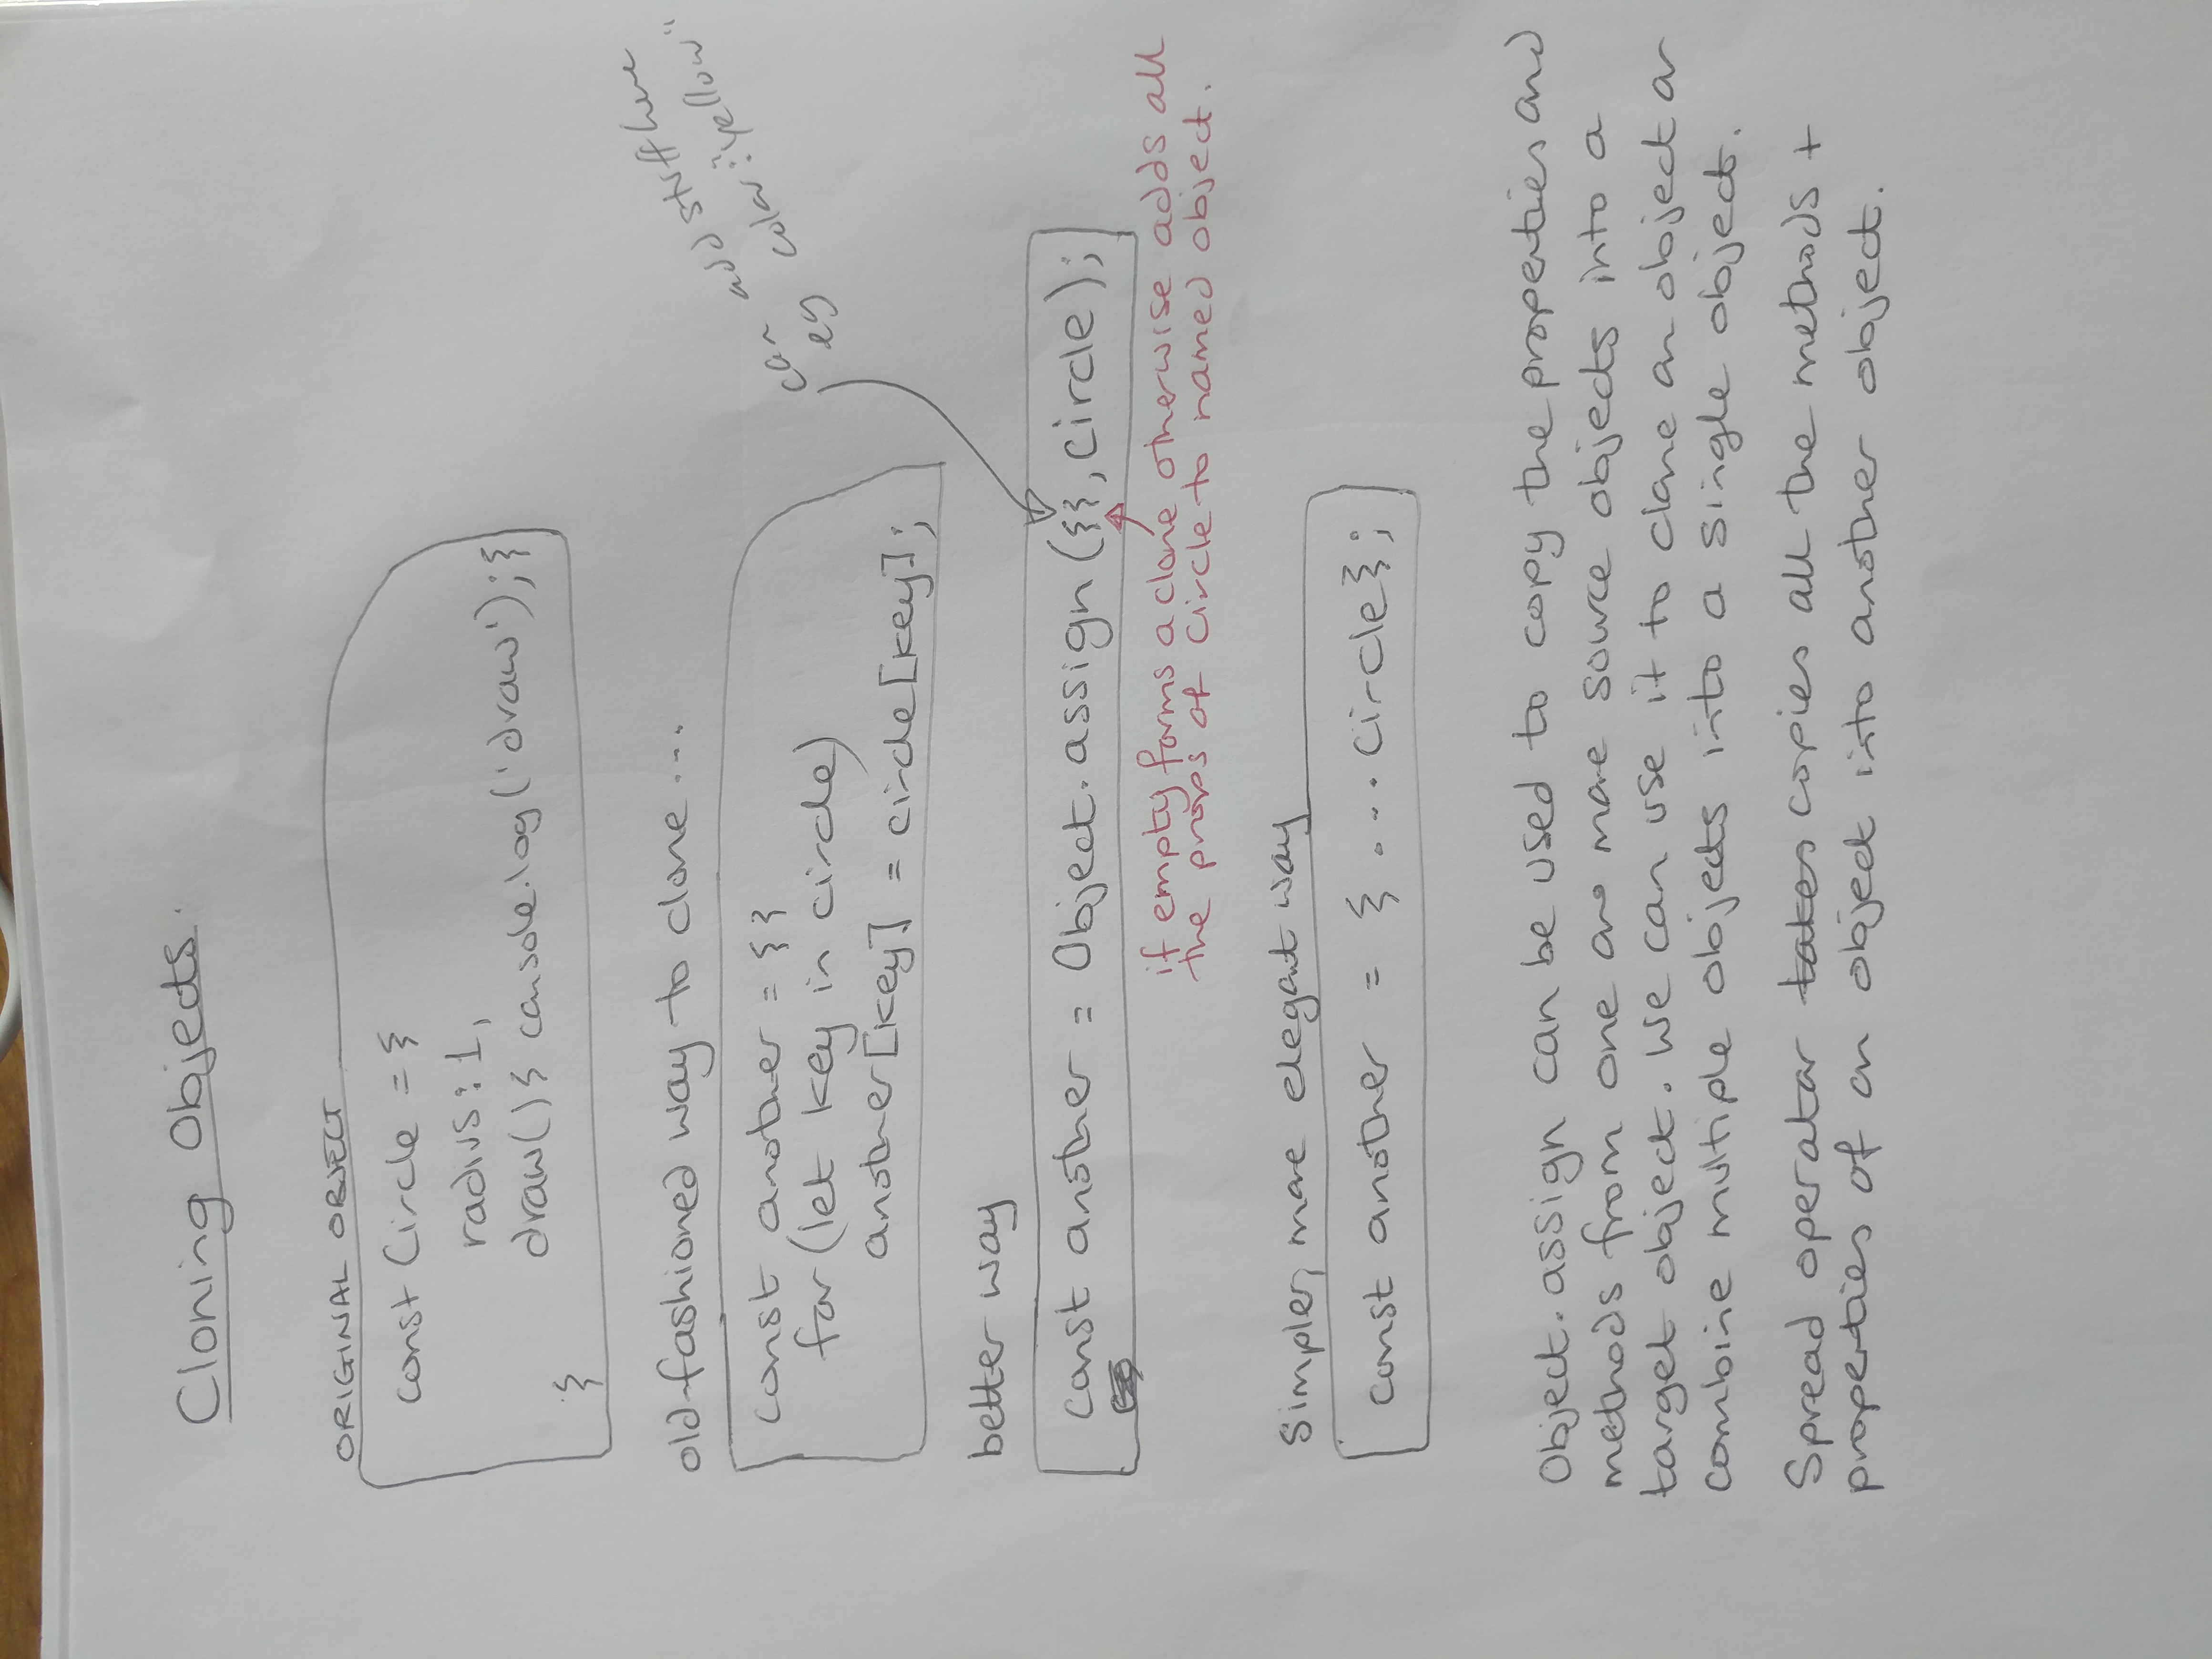 Cloning Objects.
ORIGINAL OBJECT
const Circle = {
radius: 1,
draw() { console.log('draw'); }
}
old fashioned way to clone ...
const another = {}
for (let key in circle)
another[key] = circle[key];
better way
can add stuff here
eg color: "yellow"
const another = Object.assign({}, circle);
if empty forms a clone otherwise adds all
the props of circle to named object.
simpler, more elegant way
const another = { ...circle};
Object.assign can be used to copy the properties and
methods from one or more source objects into a
target object. We can use it to clone an object or
combine multiple objects into a single object.
Spread operator takes copies all the methods +
properties of an object into another object.